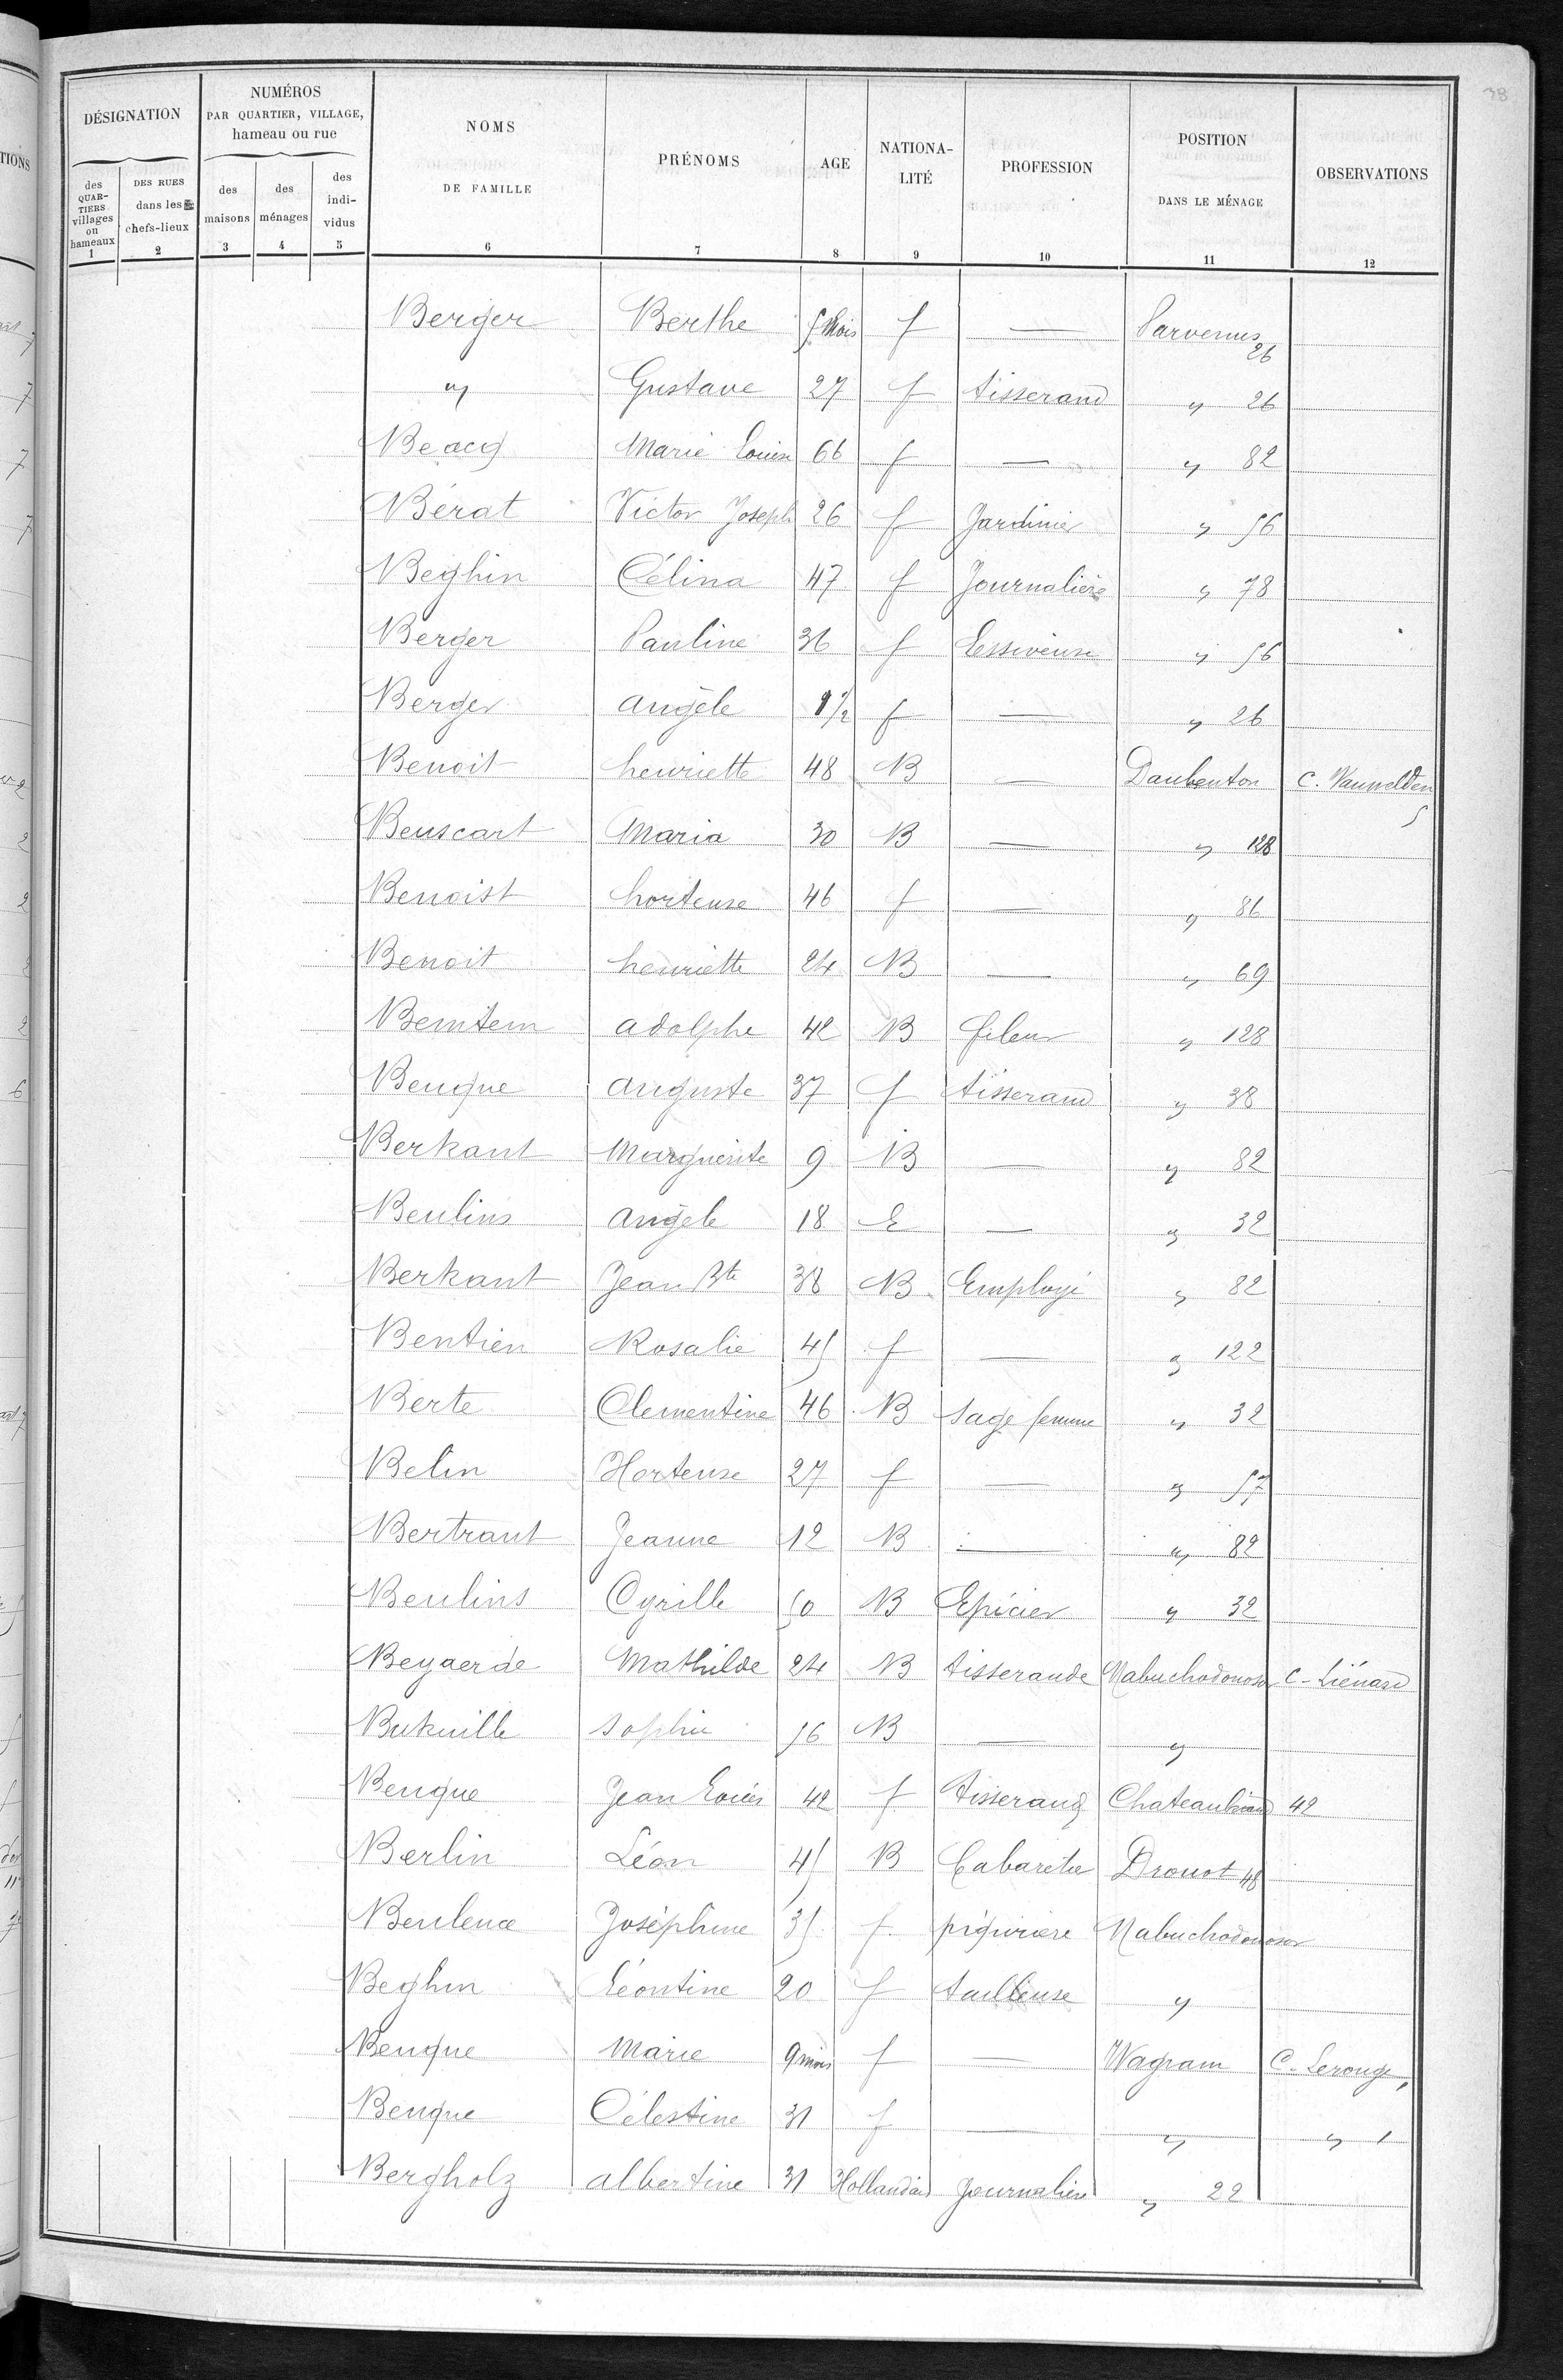 38
DÉSIGNATION
NUMÉROS
PAR QUARTIER, VILLAGE,
hameau ou rue
NOMS
DE FAMILLE
PRÉNOMS
AGE
NATIONA-
LITÉ
PROFESSION
POSITION
DANS LE MÉNAGE
OBSERVATIONS
des
QUAR-
TIERS
villages
ou
hameaux
DES RUES
dans les
chefs-lieux
des
maisons
des
ménages
des
indi-
vidus
1 2 3 4 5 6 7 8 9 10 11 12
Berger Berthe 5 Mois f — 26
" Gustave 27 f tisserand " 26
Beacq Marie Louise 66 f — " 82
Bérat Victor Joseph 26 f Jardinier " 56
Beghin Célina 47 f Journalière " 78
Berger Pauline 36 f Lessiveuse " 56
Berger angèle 1½ f — " 26
Benoit henriette 48 B — Daubenton C. Vanwelden 5
Beuscart Maria 30 B — " 128
Benoist hortense 46 f — " 86
Benoit henriette 24 B — " 69
Bemtem adolphe 42 B fileur " 128
Benque auguste 37 f tisserand " 38
Berkant Marguerite 9 B — " 82
Beulins angèle 18 E — " 32
Berkant Jean Bte 38 B Employé " 82
Bentien Rosalie 45 f — " 122
Berte Clementine 46 B Sage femme " 32
Belin Hortense 27 f — " 57
Bertrant Jeanne 12 B — " 82
Beulins Cyrille 50 B Epicier " 32
Beyaerde Mathilde 24 B tisserande Nabuchodonosor C. Liénard
Sophie 56 B — "
Benque Jean Louis 42 f tisserand Chateaubriand 42
Berlin Léon 45 B Cabaretier Drouot 48
Joséphine 35 f piqurière Nabuchodonosor
Beghin Léontine 20 f tailleuse "
Benque Marie 9 mois f — Wagram C. Lerouge 1
Benque Célestine 31 f — " " 1
Bergholz albertine 31 Hollandais Journalière " 22